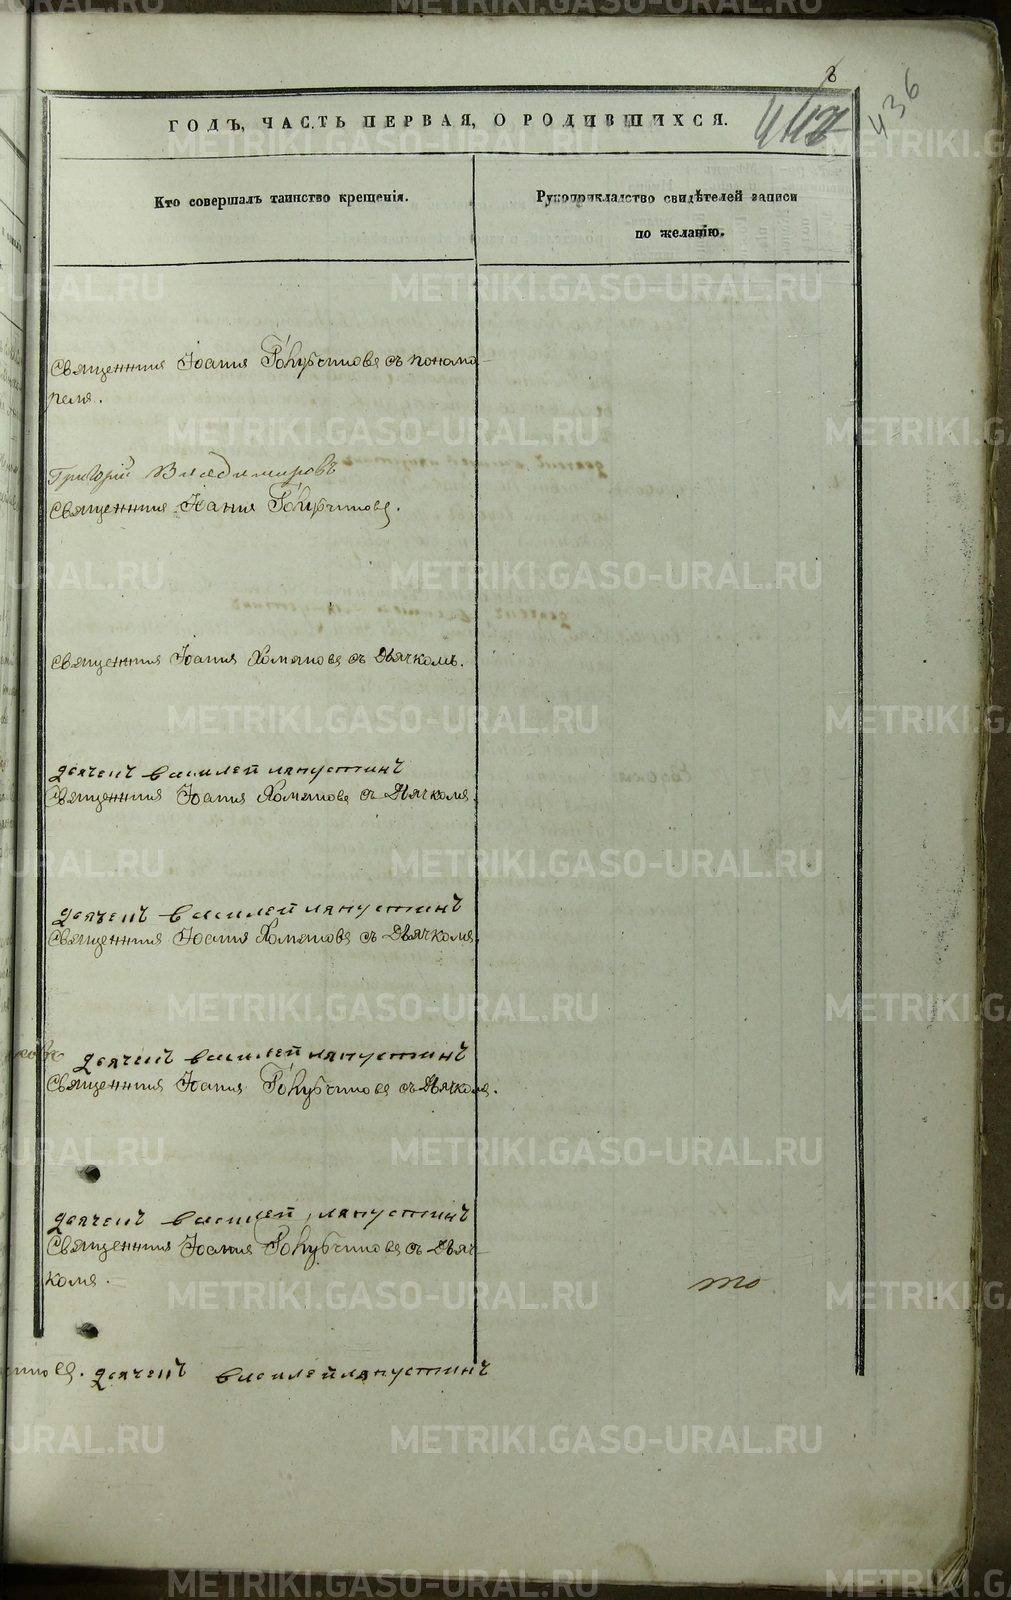 8
436
ГОДЪ, ЧАСТЬ ПЕРВАЯ, О РОДИВШИХСЯ.
Кто совершалъ таинство крещенія.
Рукоприкладство свидѣтелей записи
по желанію.
Священникъ Іоаннъ съ понома-
ремъ.
Григорій Владимировъ
Священникъ Іоаннъ
Священникъ Іоаннъ Хомяковъ съ Дьячкомъ.
дьячекъ василей ляпустинъ
Священникъ Іоаннъ Хомяковъ съ Дьячкомъ.
дьячекъ василей ляпустинъ
Священникъ Іоаннъ Хомяковъ съ Дьячкомъ.
дьячекъ василей ляпустинъ
Священникъ Іоаннъ съ Дьячкомъ.
дьячекъ василей ляпустинъ
Священникъ Іоаннъ съ Дьяч-
комъ.
то
дьячекъ василей ляпустинъ
METRIKI.GASO-URAL.RU